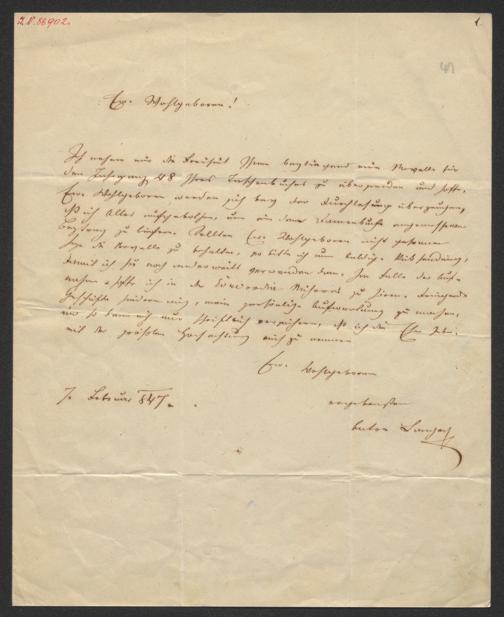 I.N. 66902.
1.
Ew. Wohlgeboren!
Ich nehme mir die Freiheit Ihnen beyliegend eine Novelle für
den Jahrgang 48 Ihres Taschenbuches zu übersenden und hoffe,
Euer Wohlgeboren werden sich bey der Durchlesung überzeugen,
daß ich Alles aufgebothen, um ein dem Damenbuche angemessenen
Beytrag zu liefern. Sollten Euer Wohlgeboren nicht gesonnen
seyn die Novelle zu behalten, so bitte ich um baldige Rücksendung,
damit ich sie noch anderwärts verwenden kann. Im Falle der
ich in der
Geschäfte hindern mich, meine persönliche Aufwartung zu machen,
und so kann ich nur schriftlich versichern, daß ich die Ehre habe
mit der größten Hochachtung mich zu nennen
Euer Wohlgeboren
7. Februar 847.
ergebenster
Anton Langer